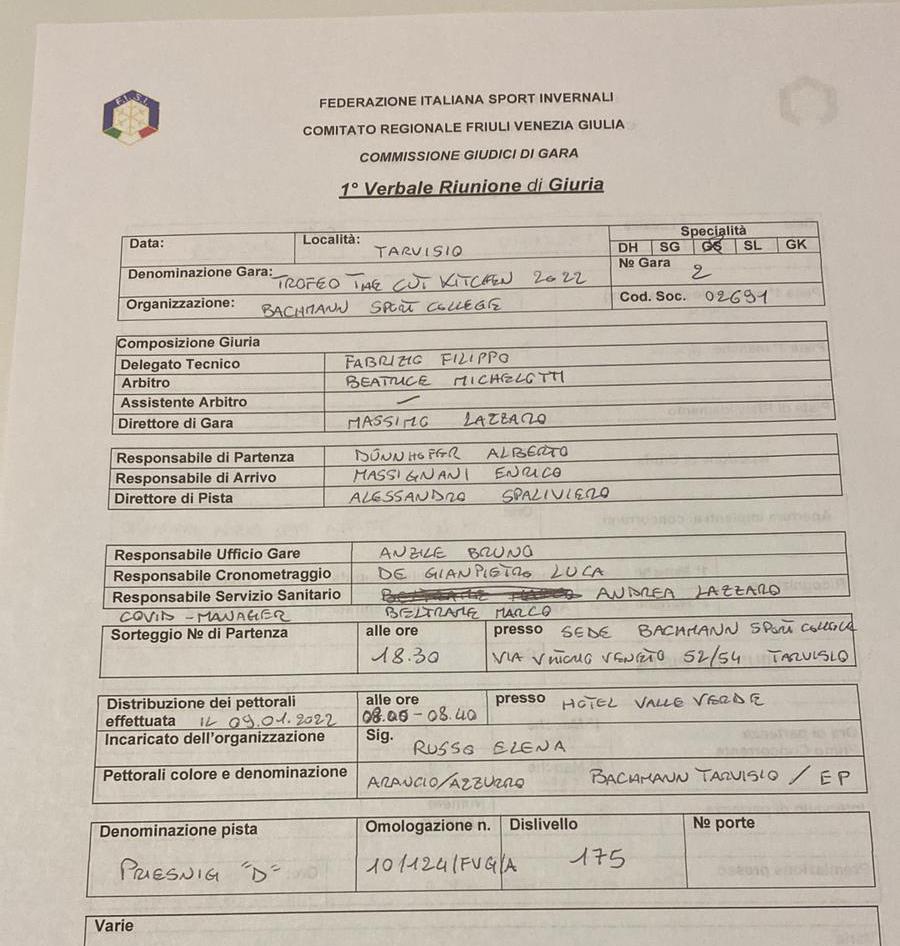 F.I.S.I.
FEDERAZIONE ITALIANA SPORT INVERNALI
COMITATO REGIONALE FRIULI VENEZIA GIULIA
COMMISSIONE GIUDICI DI GARA
1° Verbale Riunione di Giuria
Data: Località: TARVISIO Specialità
DH SG GS SL GK
Denominazione Gara: TROFEO THE CUT KITCHEN 2022 N° Gara 2
Organizzazione: BACHMANN SPORT COLLEGE Cod. Soc. 02691
Composizione Giuria
Delegato Tecnico FABRIZIO FILIPPO
Arbitro BEATRICE MICHELOTTI
Assistente Arbitro —
Direttore di Gara MASSIMO LAZZARO
Responsabile di Partenza DÜNNHOFER ALBERTO
Responsabile di Arrivo MASSIGNANI ENRICO
Direttore di Pista ALESSANDRO SPALIVIERO
Responsabile Ufficio Gare ANZILE BRUNO
Responsabile Cronometraggio DE GIANPIETRO LUCA
Responsabile Servizio Sanitario BELTRAME MARCO ANDREA LAZZARO
COVID-MANAGER BELTRAME MARCO
Sorteggio N° di Partenza alle ore presso SEDE BACHMANN SPORT COLLEGE
18.30 VIA VITTORIO VENETO 52/54 TARVISIO
Distribuzione dei pettorali alle ore presso HOTEL VALLE VERDE
effettuata IL 09.01.2022 08.00-08.40
Incaricato dell'organizzazione Sig. RUSSO ELENA
Pettorali colore e denominazione ARANCIO/AZZURRO BACHMANN TARVISIO / EP
Denominazione pista Omologazione n. Dislivello N° porte
PRIESNIG "D" 101124/FVG/A 175
Varie